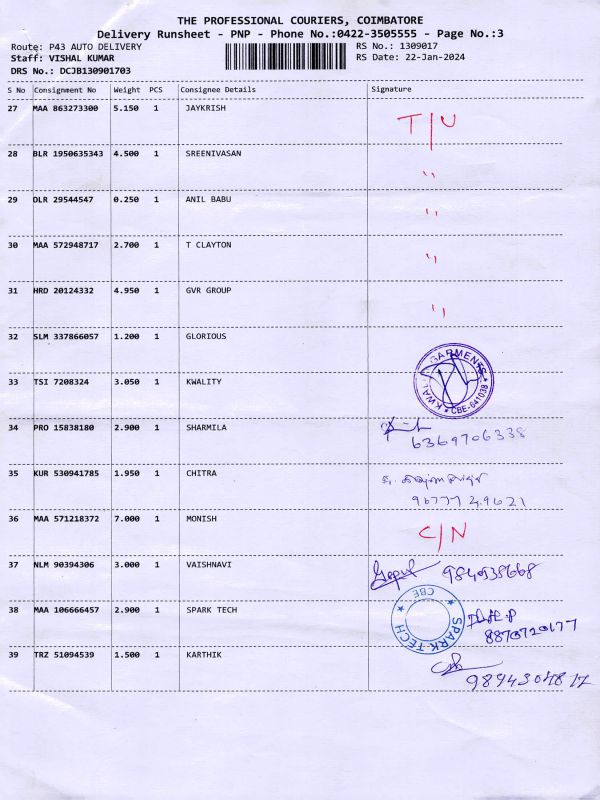 THE PROFESSIONAL COURIERS, COIMBATORE
Delivery Runsheet - PNP - Phone No.:0422-3505555 - Page No.:3
Route: P43 AUTO DELIVERY RS No.: 1309017
Staff: VISHAL KUMAR RS Date: 22-Jan-2024
DRS No.: DCJB130901703
S No Consignment No Weight PCS Consignee Details Signature
27 MAA 863273300 5.150 1 JAYKRISH T/U
28 BLR 1950635343 4.500 1 SREENIVASAN ,,
29 DLR 29544547 0.250 1 ANIL BABU ,,
30 MAA 572948717 2.700 1 T CLAYTON ,,
31 HRD 20124332 4.950 1 GVR GROUP ,,
32 SLM 337866057 1.200 1 GLORIOUS
33 TSI 7208324 3.050 1 KWALITY GARMENTS CBE-641038
34 PRO 15838180 2.900 1 SHARMILA
6369706338
35 KUR 530941785 1.950 1 CHITRA
36 MAA 571218372 7.000 1 MONISH C/N
37 NLM 90394306 3.000 1 VAISHNAVI Gopul
38 MAA 106666457 2.900 1 SPARK TECH SPARK TECH CBE
8870720177
39 TRZ 51094539 1.500 1 KARTHIK